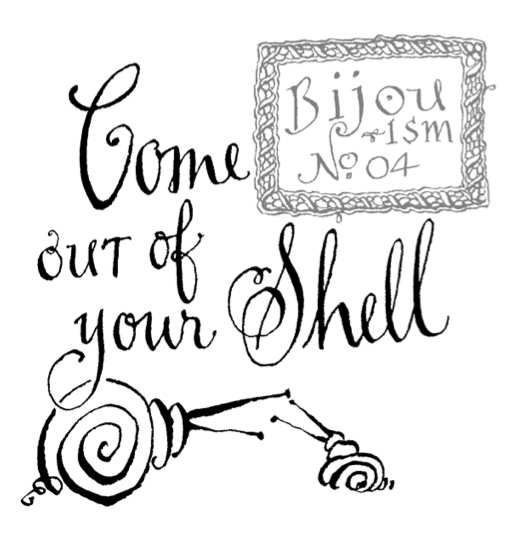 Bijou
ism
No. 04
Come
out of
your Shell